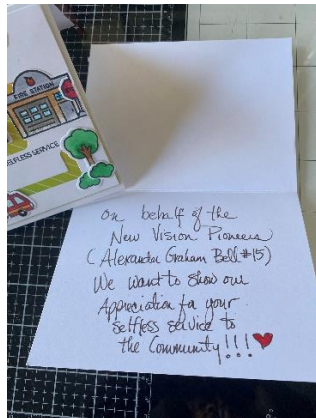 FIRE STATION
SELFLESS SERVICE
On behalf of the
New Vision Pioneers
(Alexander Graham Bell #15)
We want to show our
Appreciation for your
selfless service to
the Community!!!